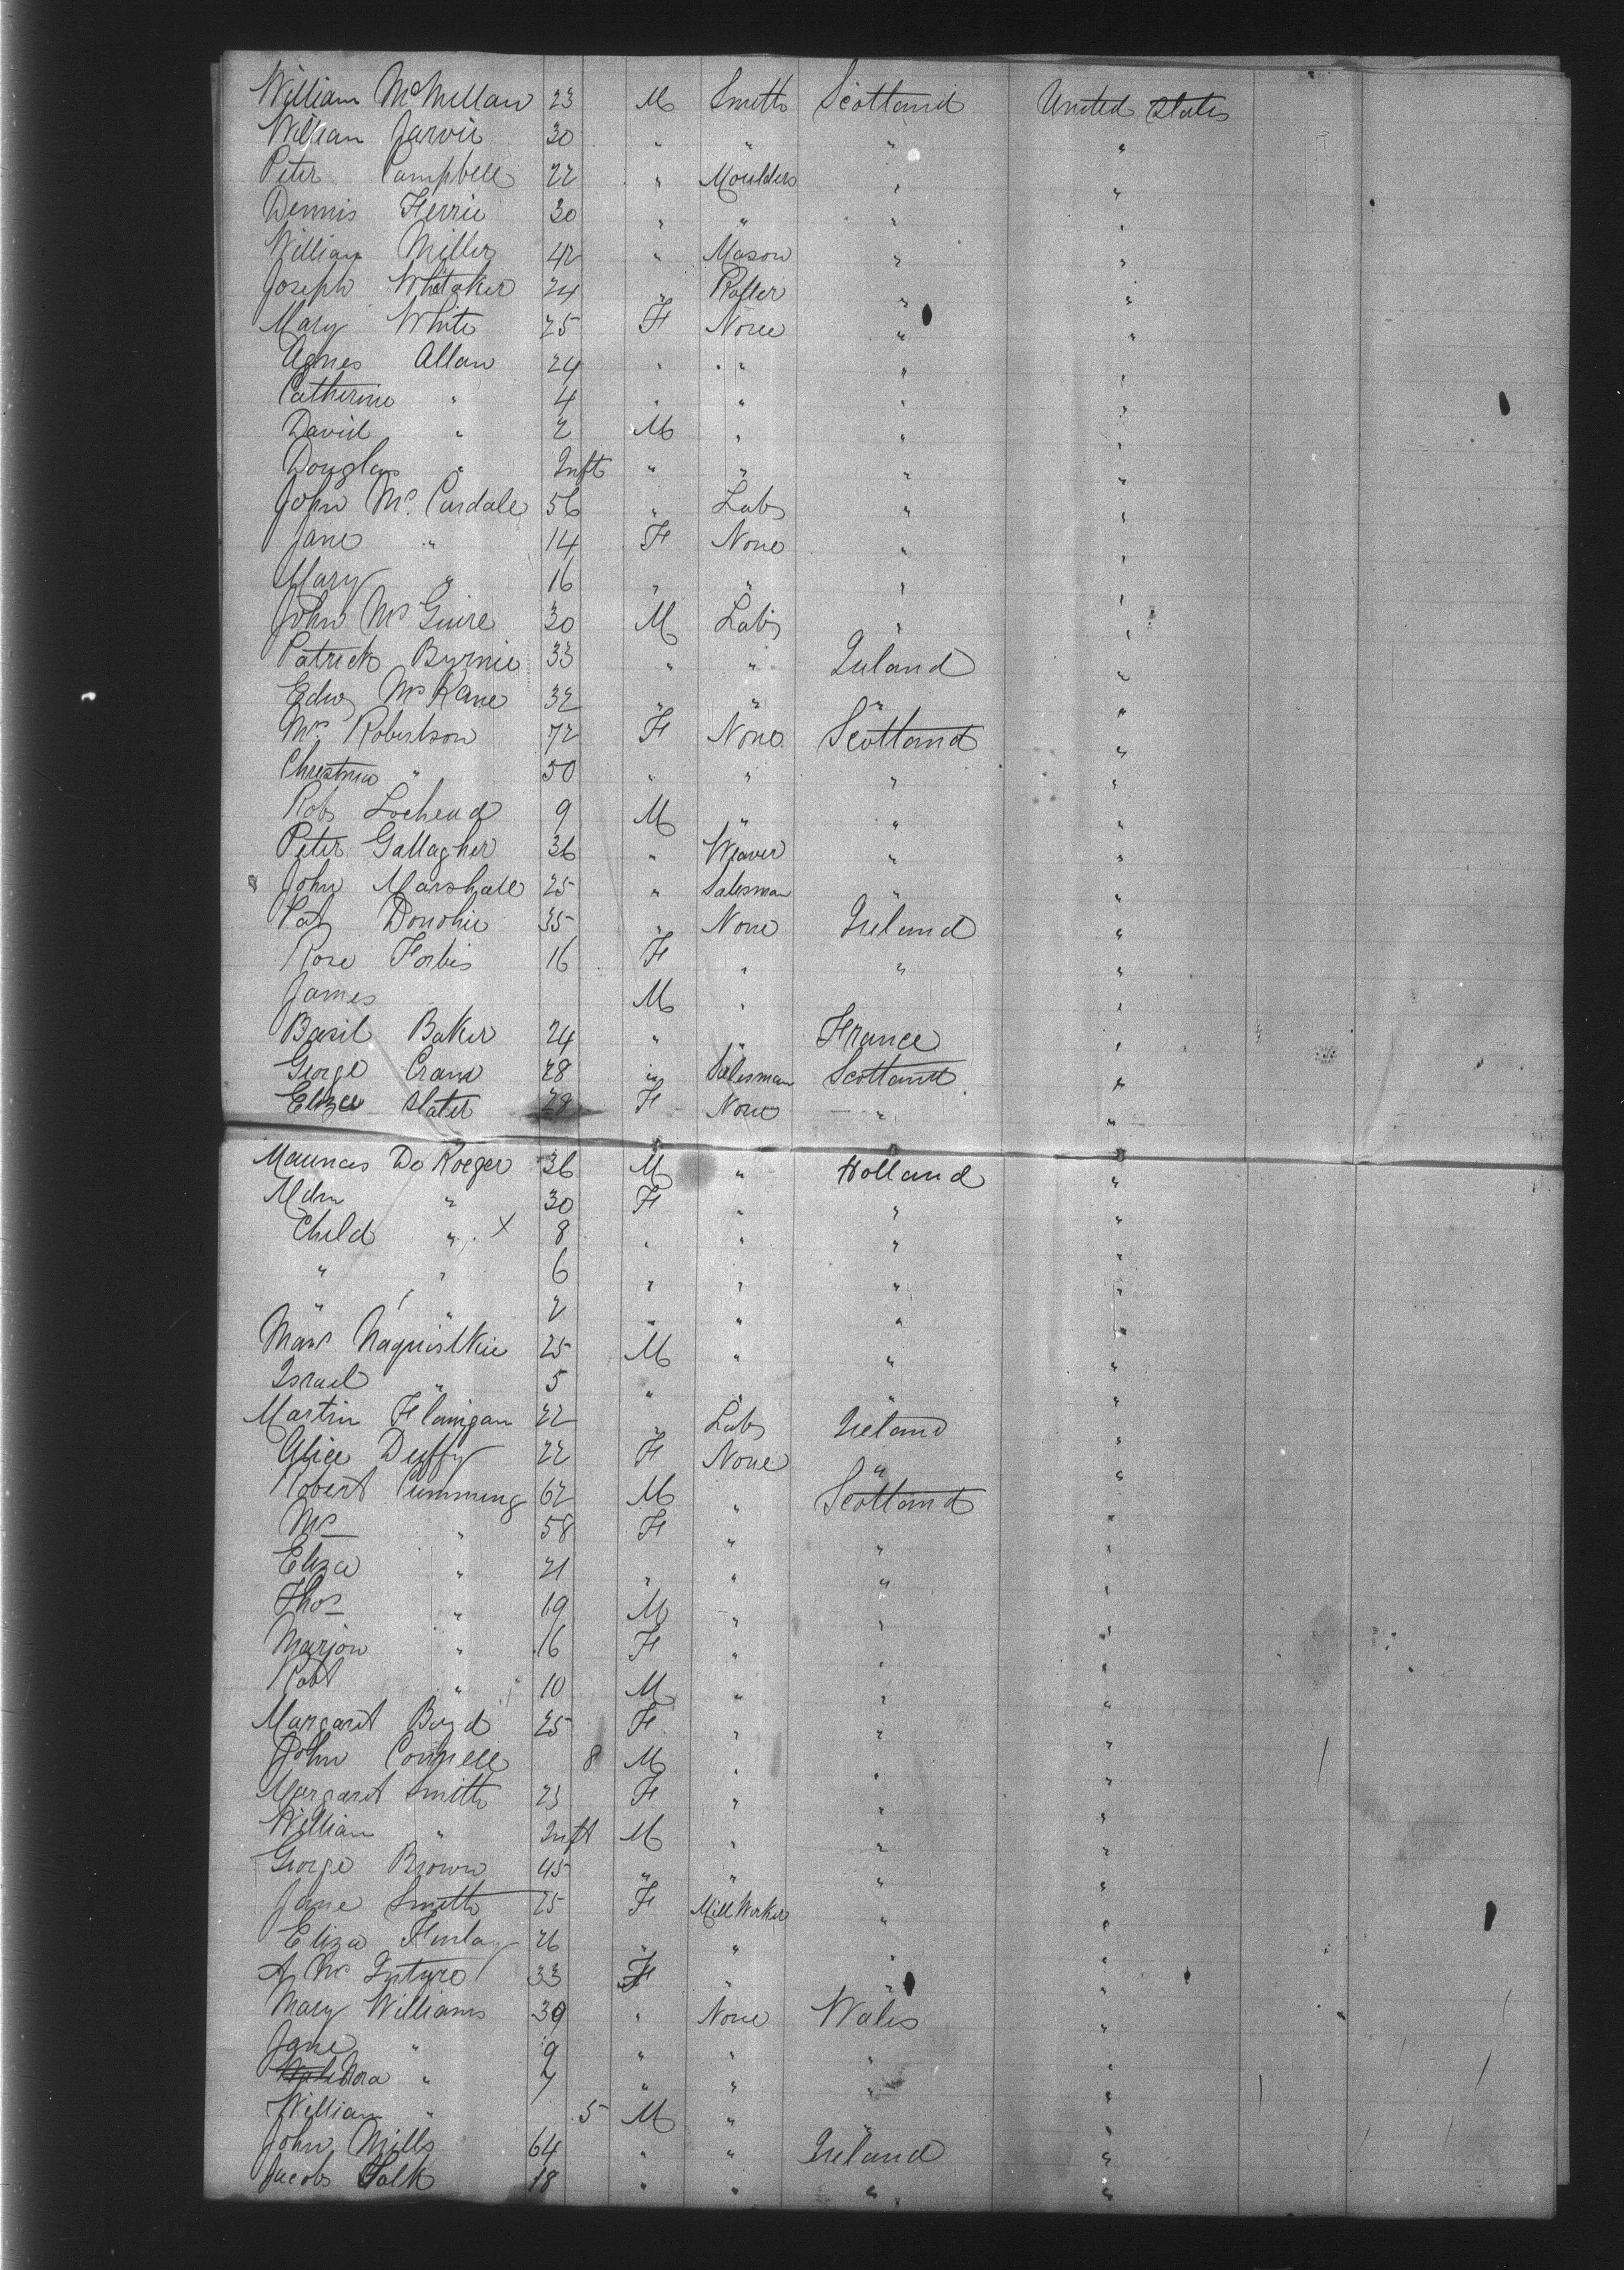 William McMillan 23 M Smith Scotland United States
William Jarvie 30 " " " "
Peter Campbell 22 " Moulders " "
Dennis Ferrie 30 " " " "
William Miller 42 " Mason " "
Joseph Whitaker 24 " " "
Mary White 25 F None " "
Agnes Allan 24 " " " "
Catherine " 4 " " " "
David " 2 M " " "
Douglas " Inft " " " "
John Mc 56 " Labr " "
Jane " 14 F None " "
Mary " 16 " " " "
John McGuire 30 M Labr " "
Patrick Byrnie 33 " " Ireland "
Edwd McKane 32 " " " "
Mrs Robertson 72 F None Scotland "
Christina " 50 " " " "
Robt Lochead 9 M " " "
Peter Gallagher 36 " Weaver " "
John Marshall 25 " Salesman " "
Pat Donohie 35 " None Ireland "
Rose Forbis 16 F " " "
James M " "
Basil Baker 24 " " France "
George Crane 28 " Salesman Scotland "
Eliza Slater 28 F None " "
De Roeger 36 M " Holland "
Mdm " 30 F " " "
Child " X 8 " " " "
" " 6 " " " "
" " 2 " " " "
25 M " " "
Israel " 5 " " " "
Martin Flanigan 22 " Labr Ireland "
Alice Duffy 22 F None " "
Robert Cumming 62 M " Scotland "
Mrs " 58 F " " "
Eliza " 21 " " " "
Thos " 19 M " " "
Marion " 16 F " " "
Robt " 10 M " " "
Margaret Boyd 25 F " " "
John Connell 8 M " " "
Margaret Smith 23 F " " "
William " Inft M " " "
George Brown 45 " " " "
Jane Smith 25 F Mill Worker " "
Eliza Finlay 26 " " " "
A McIntyre 33 F " " "
Mary Williams 39 " None Wales "
Jane " 9 " " " "
Nora " 7 " " " "
William " 5 M " " "
John Mills 64 " " Ireland "
Jacob Falk 18 " " " "